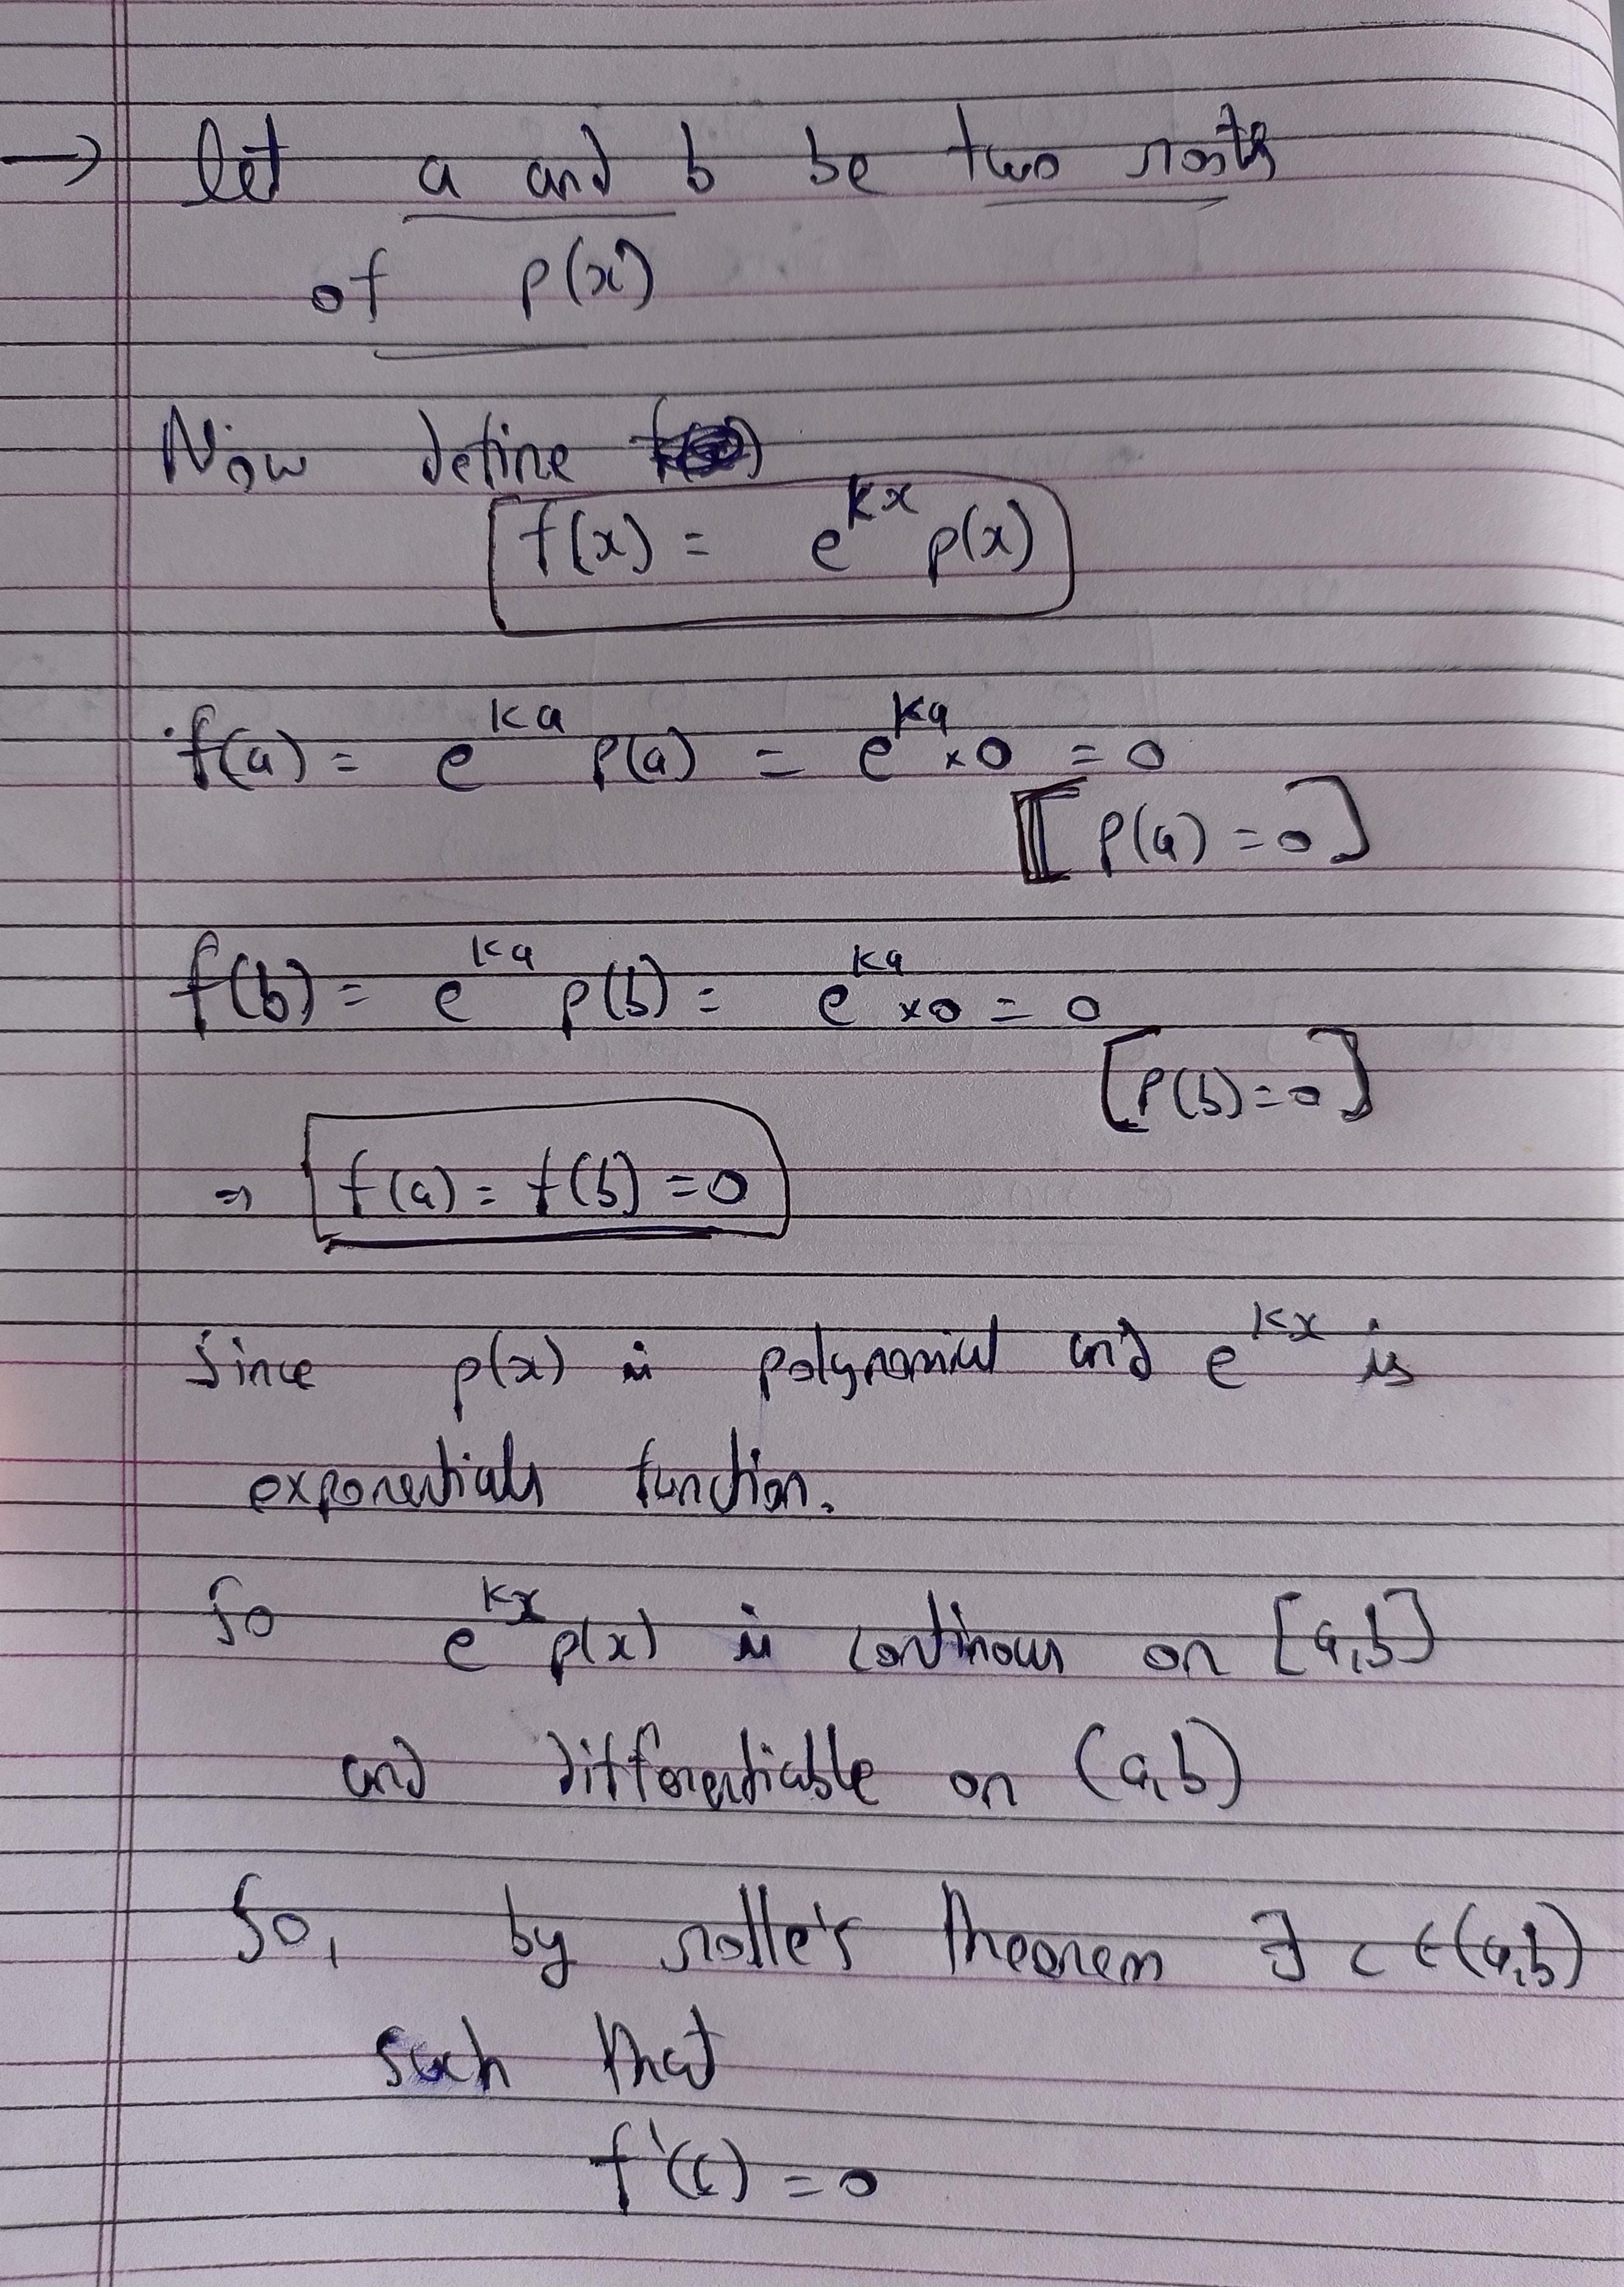 → let a and b be two roots
of p(x)
Now define
f(x) = e^{kx} p(x)
f(a) = e^{ka} p(a) = e^{ka} × 0 = 0
[p(a) = 0]
f(b) = e^{ka} p(b) = e^{ka} × 0 = 0
[p(b) = 0]
⇒ f(a) = f(b) = 0
Since p(x) is polynomial and e^{kx} is
exponentials function.
So e^{kx} p(x) is continous on [a,b]
and differentiable on (a,b)
So, by rolle's theorem ∃ c ∈ (a,b)
such that
f'(c) = 0